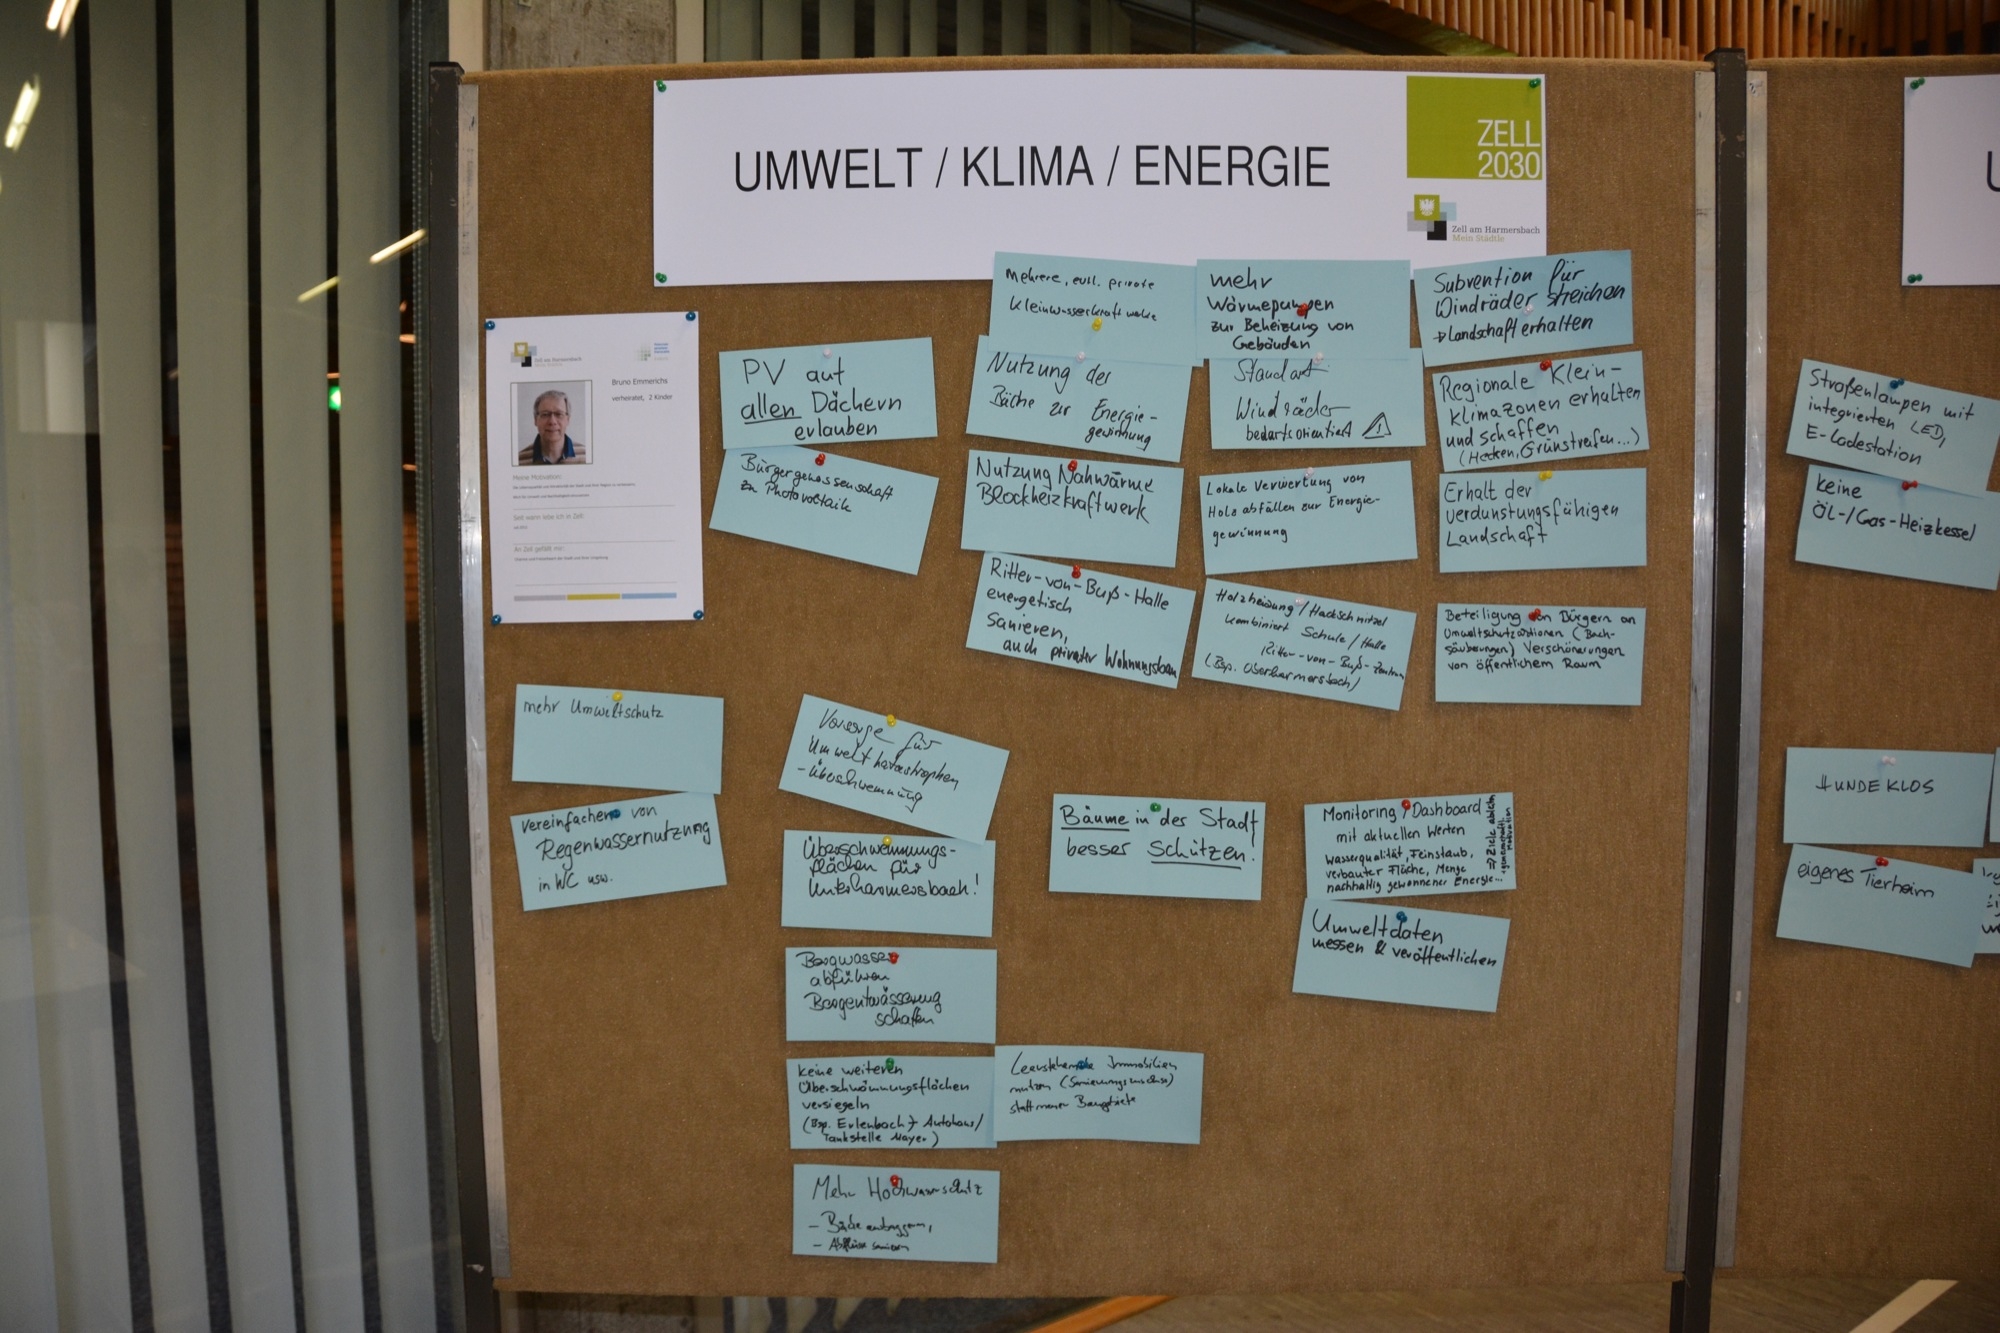 UMWELT / KLIMA / ENERGIE
ZELL
2030
Zell am Harmersbach
Mein Städtle
Zell am Harmersbach
Bruno Emmerichs
verheiratet, 2 Kinder
Meine Motivation:
Seit wann lebe ich in Zell:
An Zell gefällt mir:
PV auf
allen Dächern
erlauben
Bürgergenossenschaft
zu Photovoltaik
Mehrere, evtl. private
Kleinwasserkraftwerke
Nutzung der
Bäche zur Energie-
gewinnung
Nutzung Nahwärme
Blockheizkraftwerk
Ritter-von-Buß-Halle
energetisch
Sanieren,
auch privater Wohnungsbau
mehr
Wärmepumpen
zur Beheizung von
Gebäuden
Standort
Windräder
bedarfsorientiert
Lokale Verwertung von
Holzabfällen zur Energie-
gewinnung
Holzheizung / Hackschnitzel
kombiniert Schule / Halle
Ritter-von-Buß-Zentrum
(Bsp. Oberharmersbach)
Subvention für
Windräder streichen
→ Landschaft erhalten
Regionale Klein-
Klimazonen erhalten
und schaffen
(Hecken, Grünstreifen...)
Erhalt der
verdunstungsfähigen
Landschaft
Beteiligung von Bürgern an
Umweltschutzaktionen (Bach-
säuberungen) Verschönerungen
von öffentlichem Raum
mehr Umweltschutz
vereinfachen von
Regenwassernutzung
in WC usw.
Vorsorge für
Umweltkatastrophen
- Überschwemmung
Überschwemmungs-
flächen für
Unterharmersbach!
Bergwasser
abführen
Bergentwässerung
schaffen
keine weiteren
Überschwemmungsflächen
versiegeln
(Bsp. Erlenbach → Autohaus/
Tankstelle Mayer)
Mehr Hochwasserschutz
- Bäche ausbaggern,
- Abflüsse sanieren
Leerstehende Immobilien
nutzen
statt neuer Baugebiete
Bäume in der Stadt
besser Schützen!
Monitoring, Dashboard
mit aktuellen Werten
Wasserqualität, Feinstaub,
verbauter Fläche, Menge
nachhaltig gewonnener Energie...
⇒ Ziele ableiten
gemeinschaftl.
Motivation
Umweltdaten
messen & veröffentlichen
Straßenlampen mit
integrierten LED,
E-Ladestation
keine
ÖL-/Gas-Heizkessel
HUNDEKLOS
eigenes Tierheim